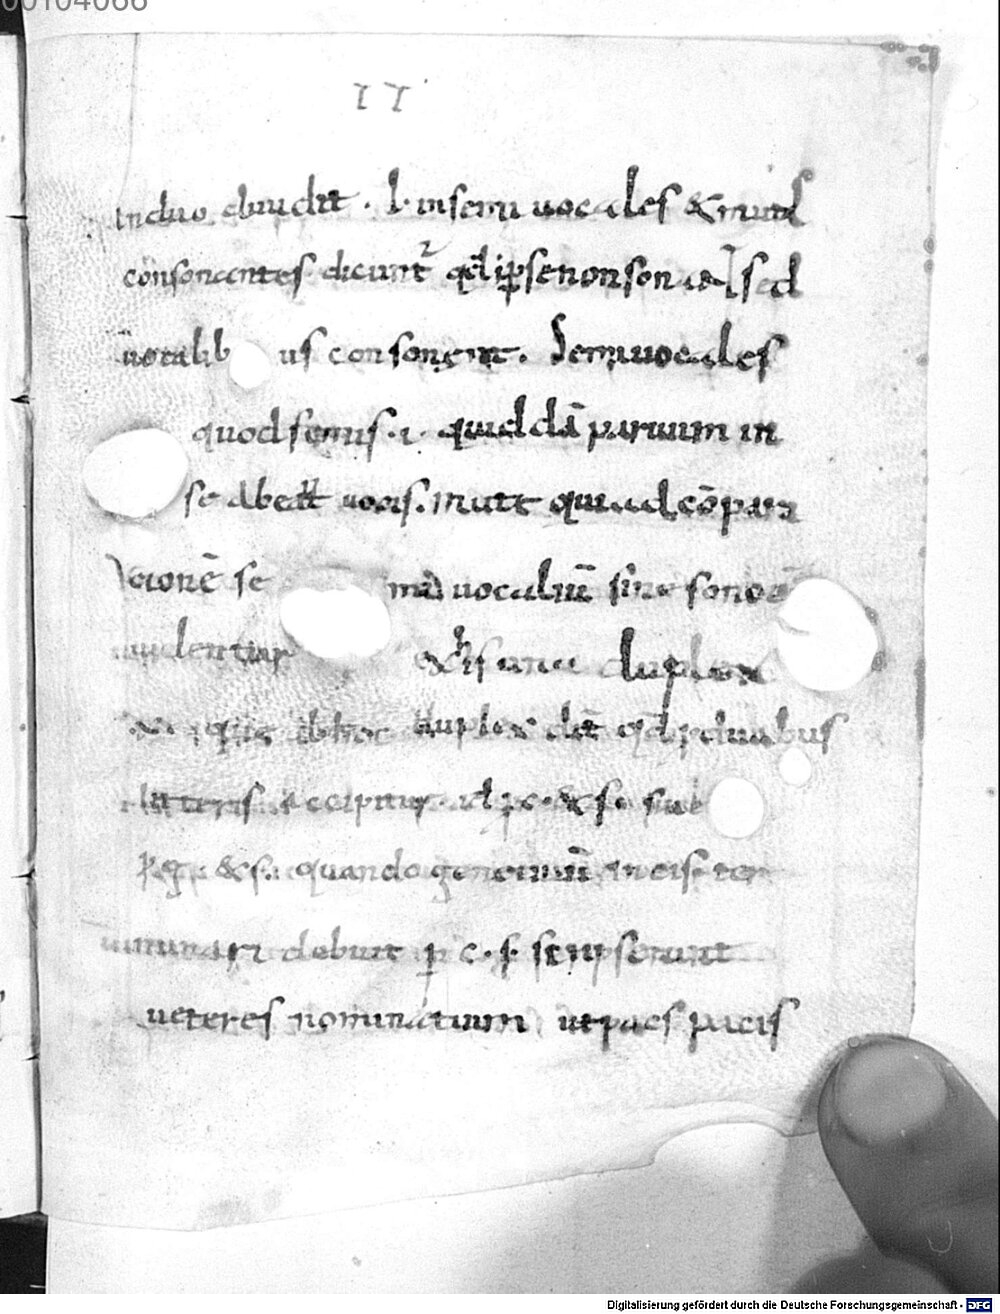 00104066
II
Induo diuidit . I. insemi uocales & mutas
consonantes dicunt̃ qd ipse non sonat sed
uocalib us consonent. Semiuocales
quod semis .i. quiddā paruum in
se abeat uocis. Mute qui ad cōpara
cionē se mi uocaliū sine sono
uidentur ex his una duplex
duplex qd duabus
litteris accipitur. id c. & s. siue
g. & s. quando genetiuū in cis ter
minari debuit p c. s. scripserunt
ueteres nominatiuum ut pacs pacis
Digitalisierung gefördert durch die Deutsche Forschungsgemeinschaft - DFG